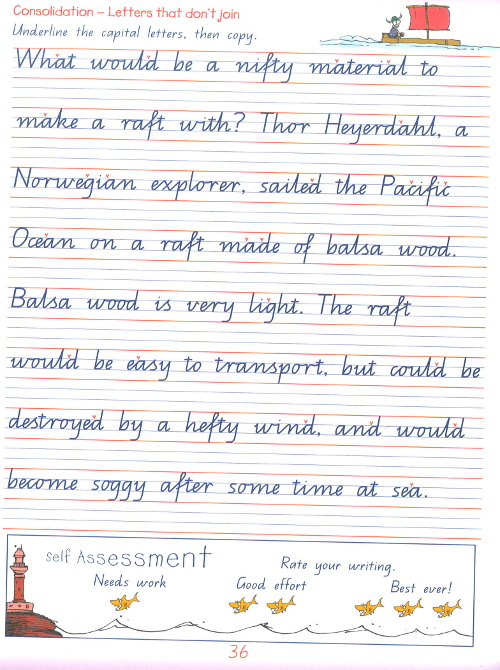 Consolidation – Letters that don't join
Underline the capital letters, then copy.
What would be a nifty material to
make a raft with? Thor Heyerdahl, a
Norwegian explorer, sailed the Pacific
Ocean on a raft made of balsa wood.
Balsa wood is very light. The raft
would be easy to transport, but could be
destroyed by a hefty wind, and would
become soggy after some time at sea.
Self Assessment
Rate your writing.
Needs work
Good effort
Best ever!
36